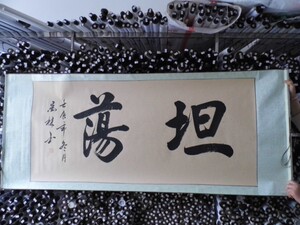 坦蕩
壬辰年冬月